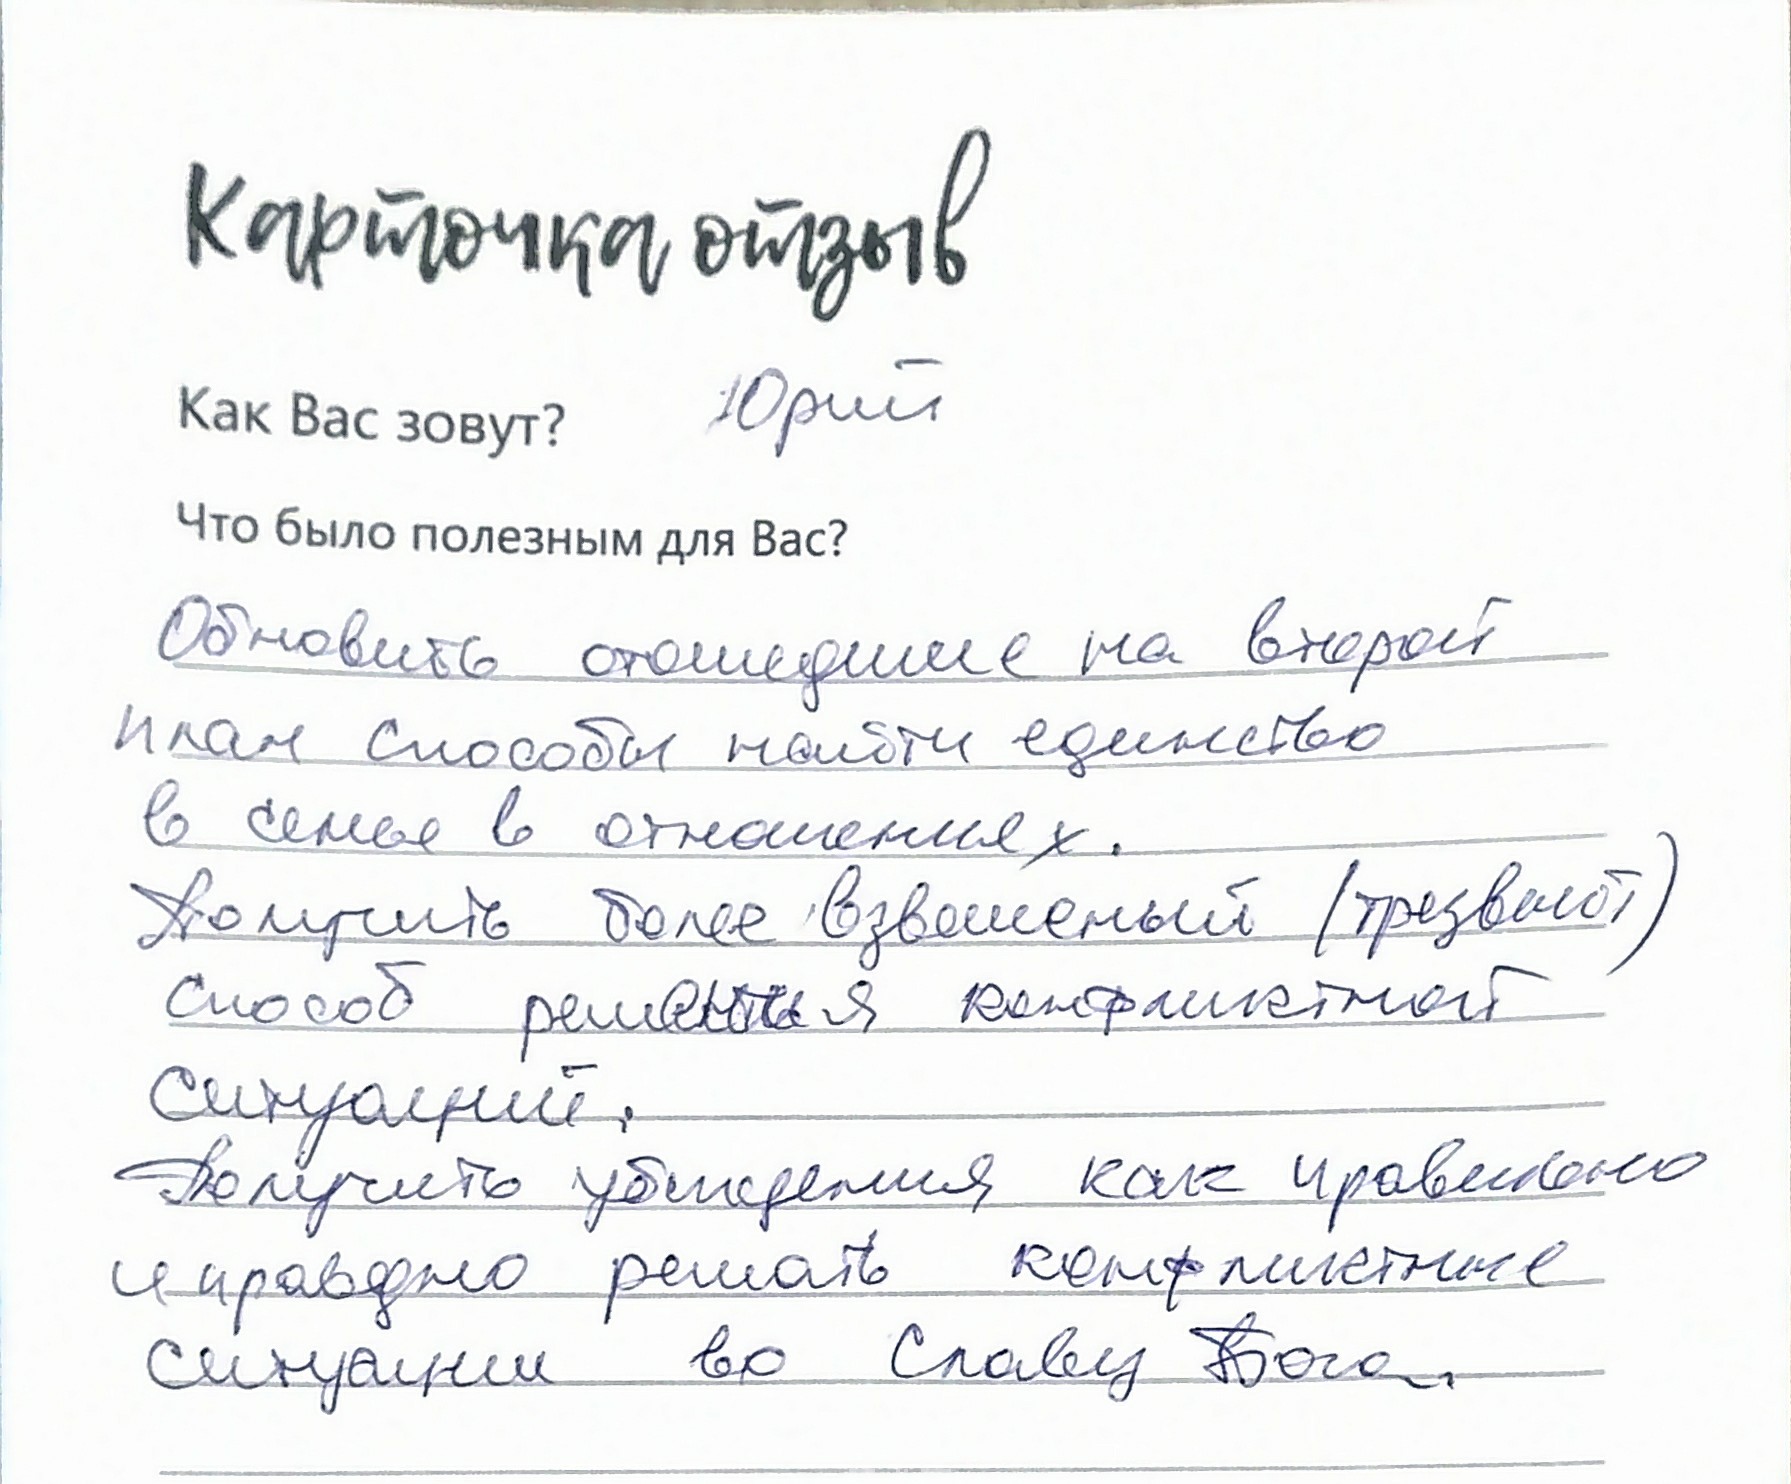 Карточка отзыв
Как Вас зовут? Юрий
Что было полезным для Вас?
Обновить отошедшие на второй
план способы найти единство
в семье в отношениях.
Получить более взвешеный (трезвый)
способ решения конфликтной
ситуаций.
Получить убеждения как правильно
и правдно решать конфликтные
ситуации во Славу Бога.